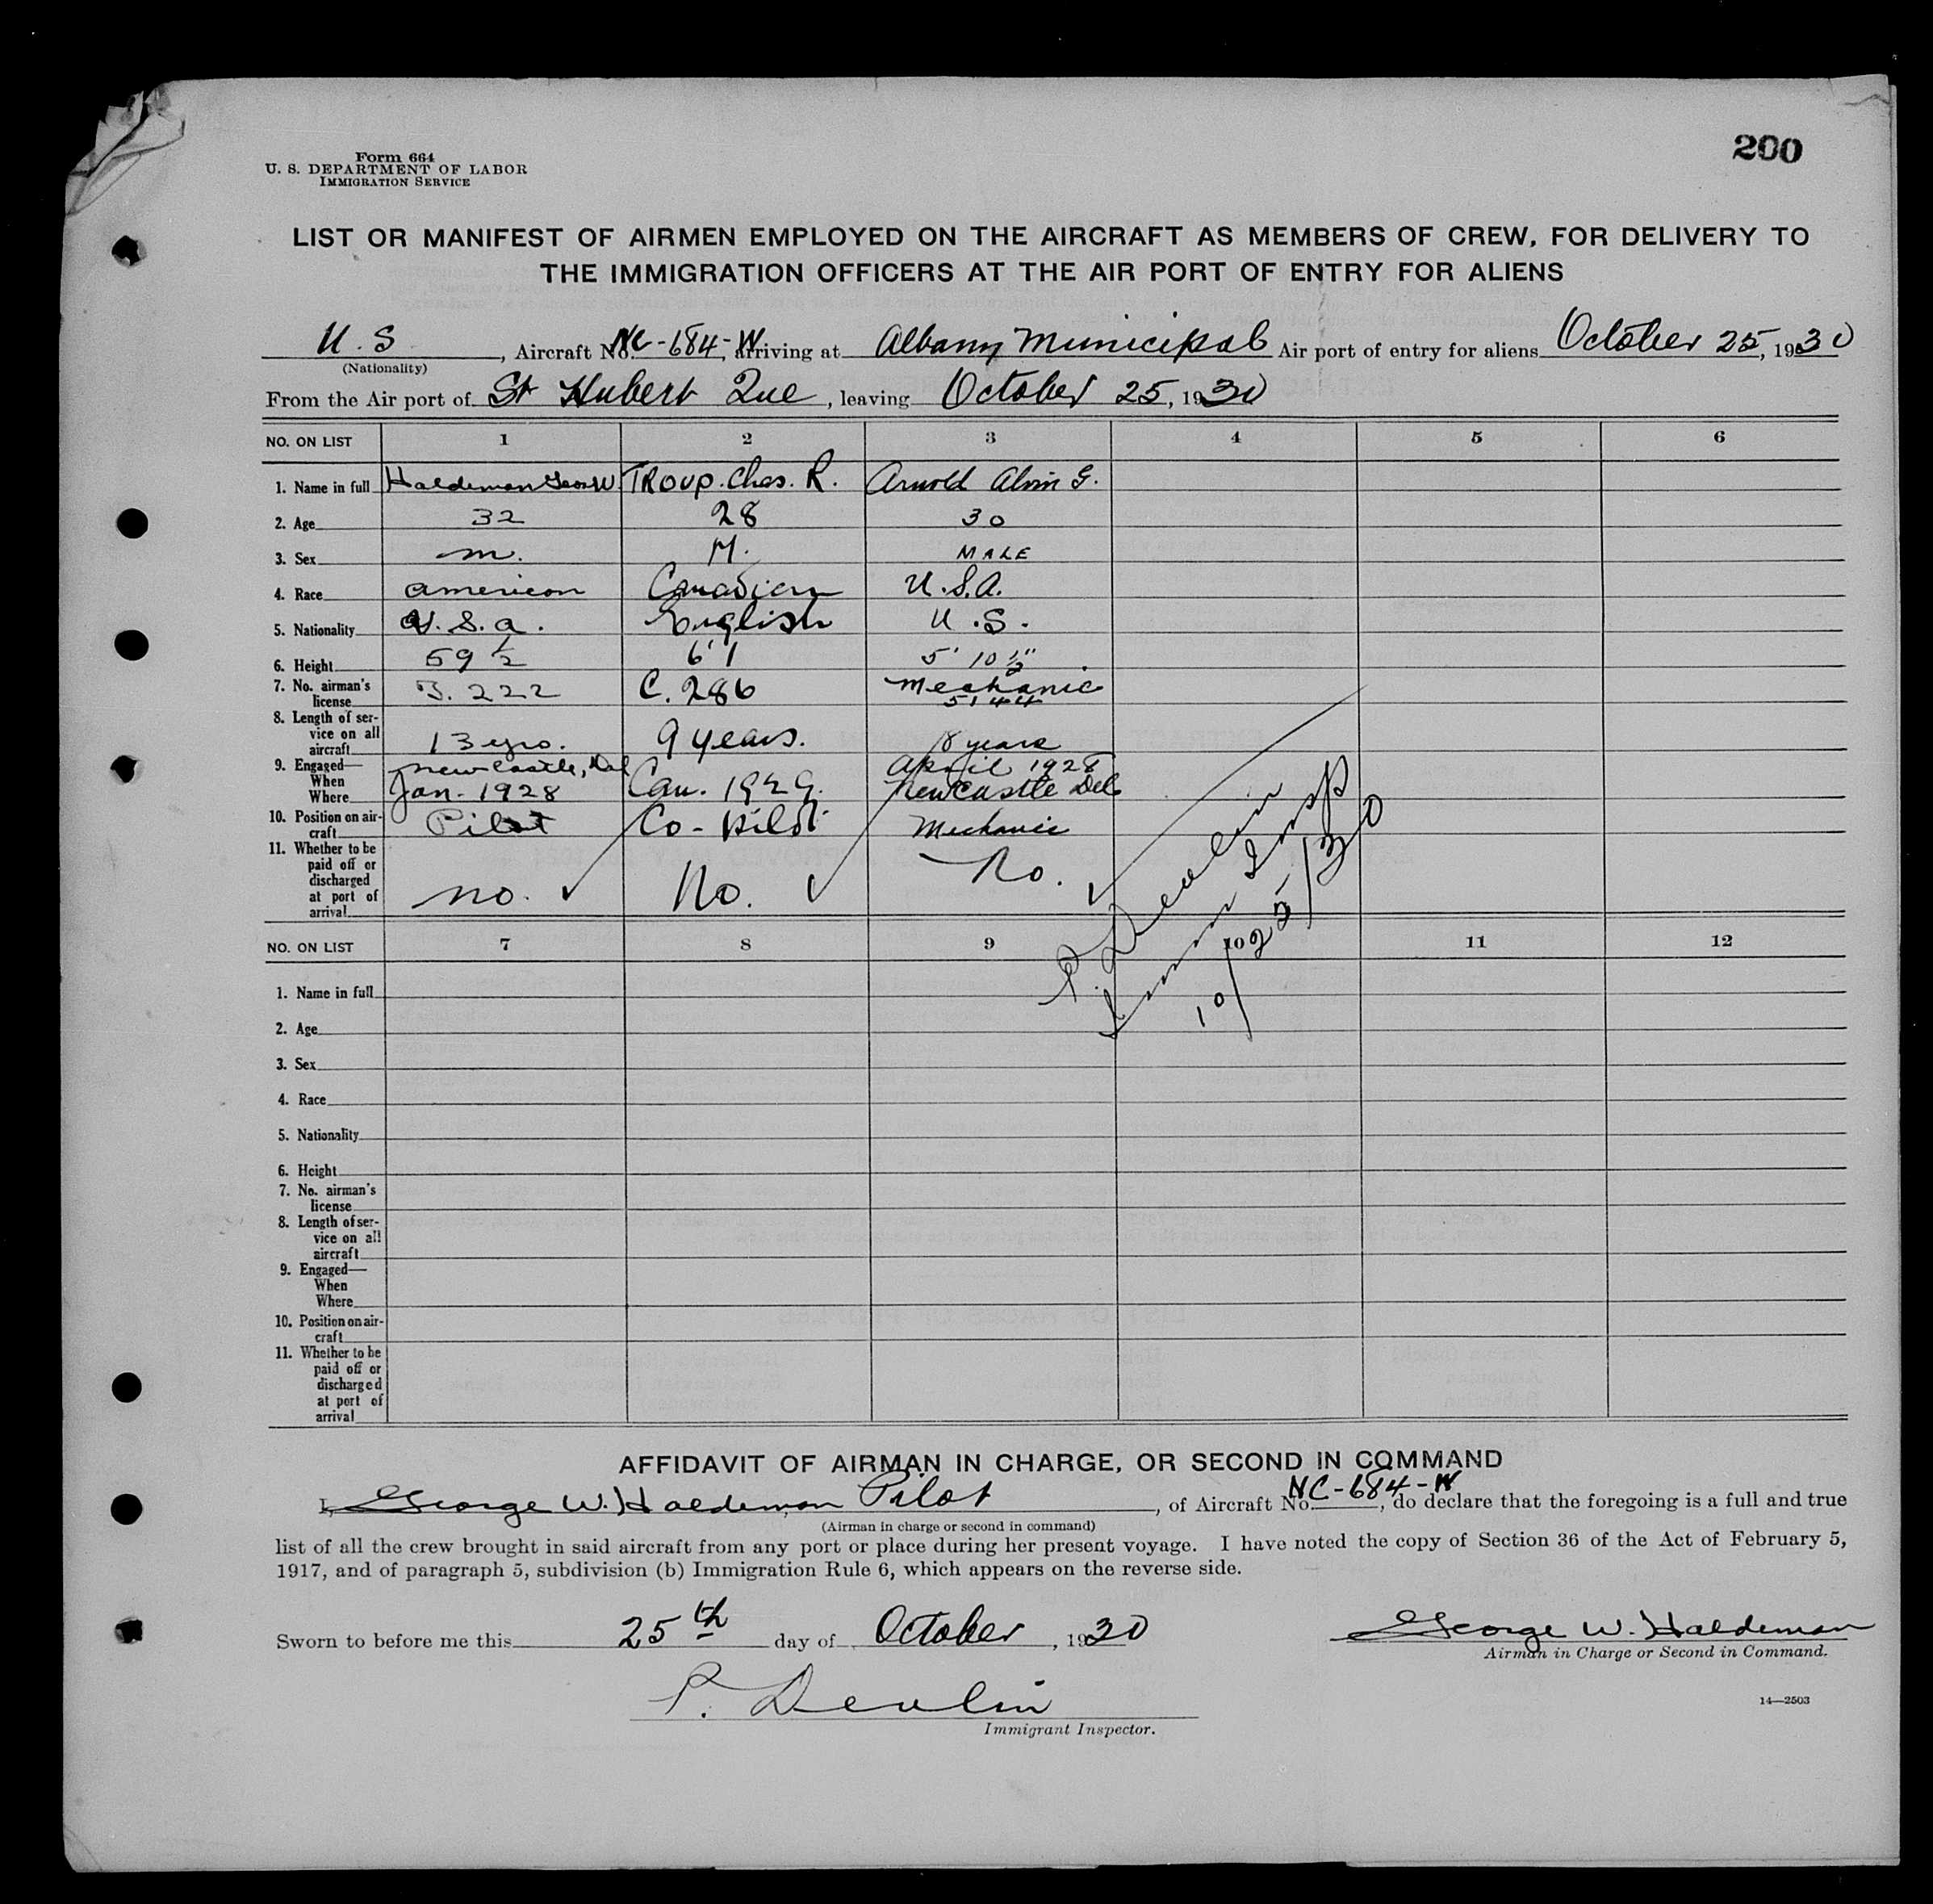 200
Form 664
U. S. DEPARTMENT OF LABOR
IMMIGRATION SERVICE
LIST OR MANIFEST OF AIRMEN EMPLOYED ON THE AIRCRAFT AS MEMBERS OF CREW, FOR DELIVERY TO
THE IMMIGRATION OFFICERS AT THE AIR PORT OF ENTRY FOR ALIENS
U.S , Aircraft No. NC-684-W, arriving at Albany Municipal Air port of entry for aliens October 25, 1930
(Nationality)
From the Air port of St Hubert Que , leaving October 25, 1930
NO. ON LIST 1 2 3 4 5 6
1. Name in full Haldeman Geo W. Troup. Chas. R. Arnold Alvin G.
2. Age 32 28 30
3. Sex m. M. MALE
4. Race american Canadian U.S.A.
5. Nationality U.S.a. English U.S.
6. Height 59 1/2 6'1 5' 10 1/2"
7. No. airman's license T. 222 C. 286 Mechanic 5144
8. Length of service on all aircraft 13 yrs. 9 years. 8 years
9. Engaged— When Where Newcastle, Del Jan. 1928 Can. 1929. April 1928 Newcastle Del
10. Position on aircraft Pilot Co-Pilot Mechanic
11. Whether to be paid off or discharged at port of arrival no. No. No.
P. Devlin
Immn Insp
10/25/30
NO. ON LIST 7 8 9 10 11 12
1. Name in full
2. Age
3. Sex
4. Race
5. Nationality
6. Height
7. No. airman's license
8. Length of service on all aircraft
9. Engaged— When Where
10. Position on aircraft
11. Whether to be paid off or discharged at port of arrival
AFFIDAVIT OF AIRMAN IN CHARGE, OR SECOND IN COMMAND
I, George W. Haldeman, Pilot , of Aircraft No. NC-684-W, do declare that the foregoing is a full and true
(Airman in charge or second in command)
list of all the crew brought in said aircraft from any port or place during her present voyage. I have noted the copy of Section 36 of the Act of February 5,
1917, and of paragraph 5, subdivision (b) Immigration Rule 6, which appears on the reverse side.
Sworn to before me this 25th day of October , 1930
George W. Haldeman
Airman in Charge or Second in Command.
P. Devlin
Immigrant Inspector.
14—2503